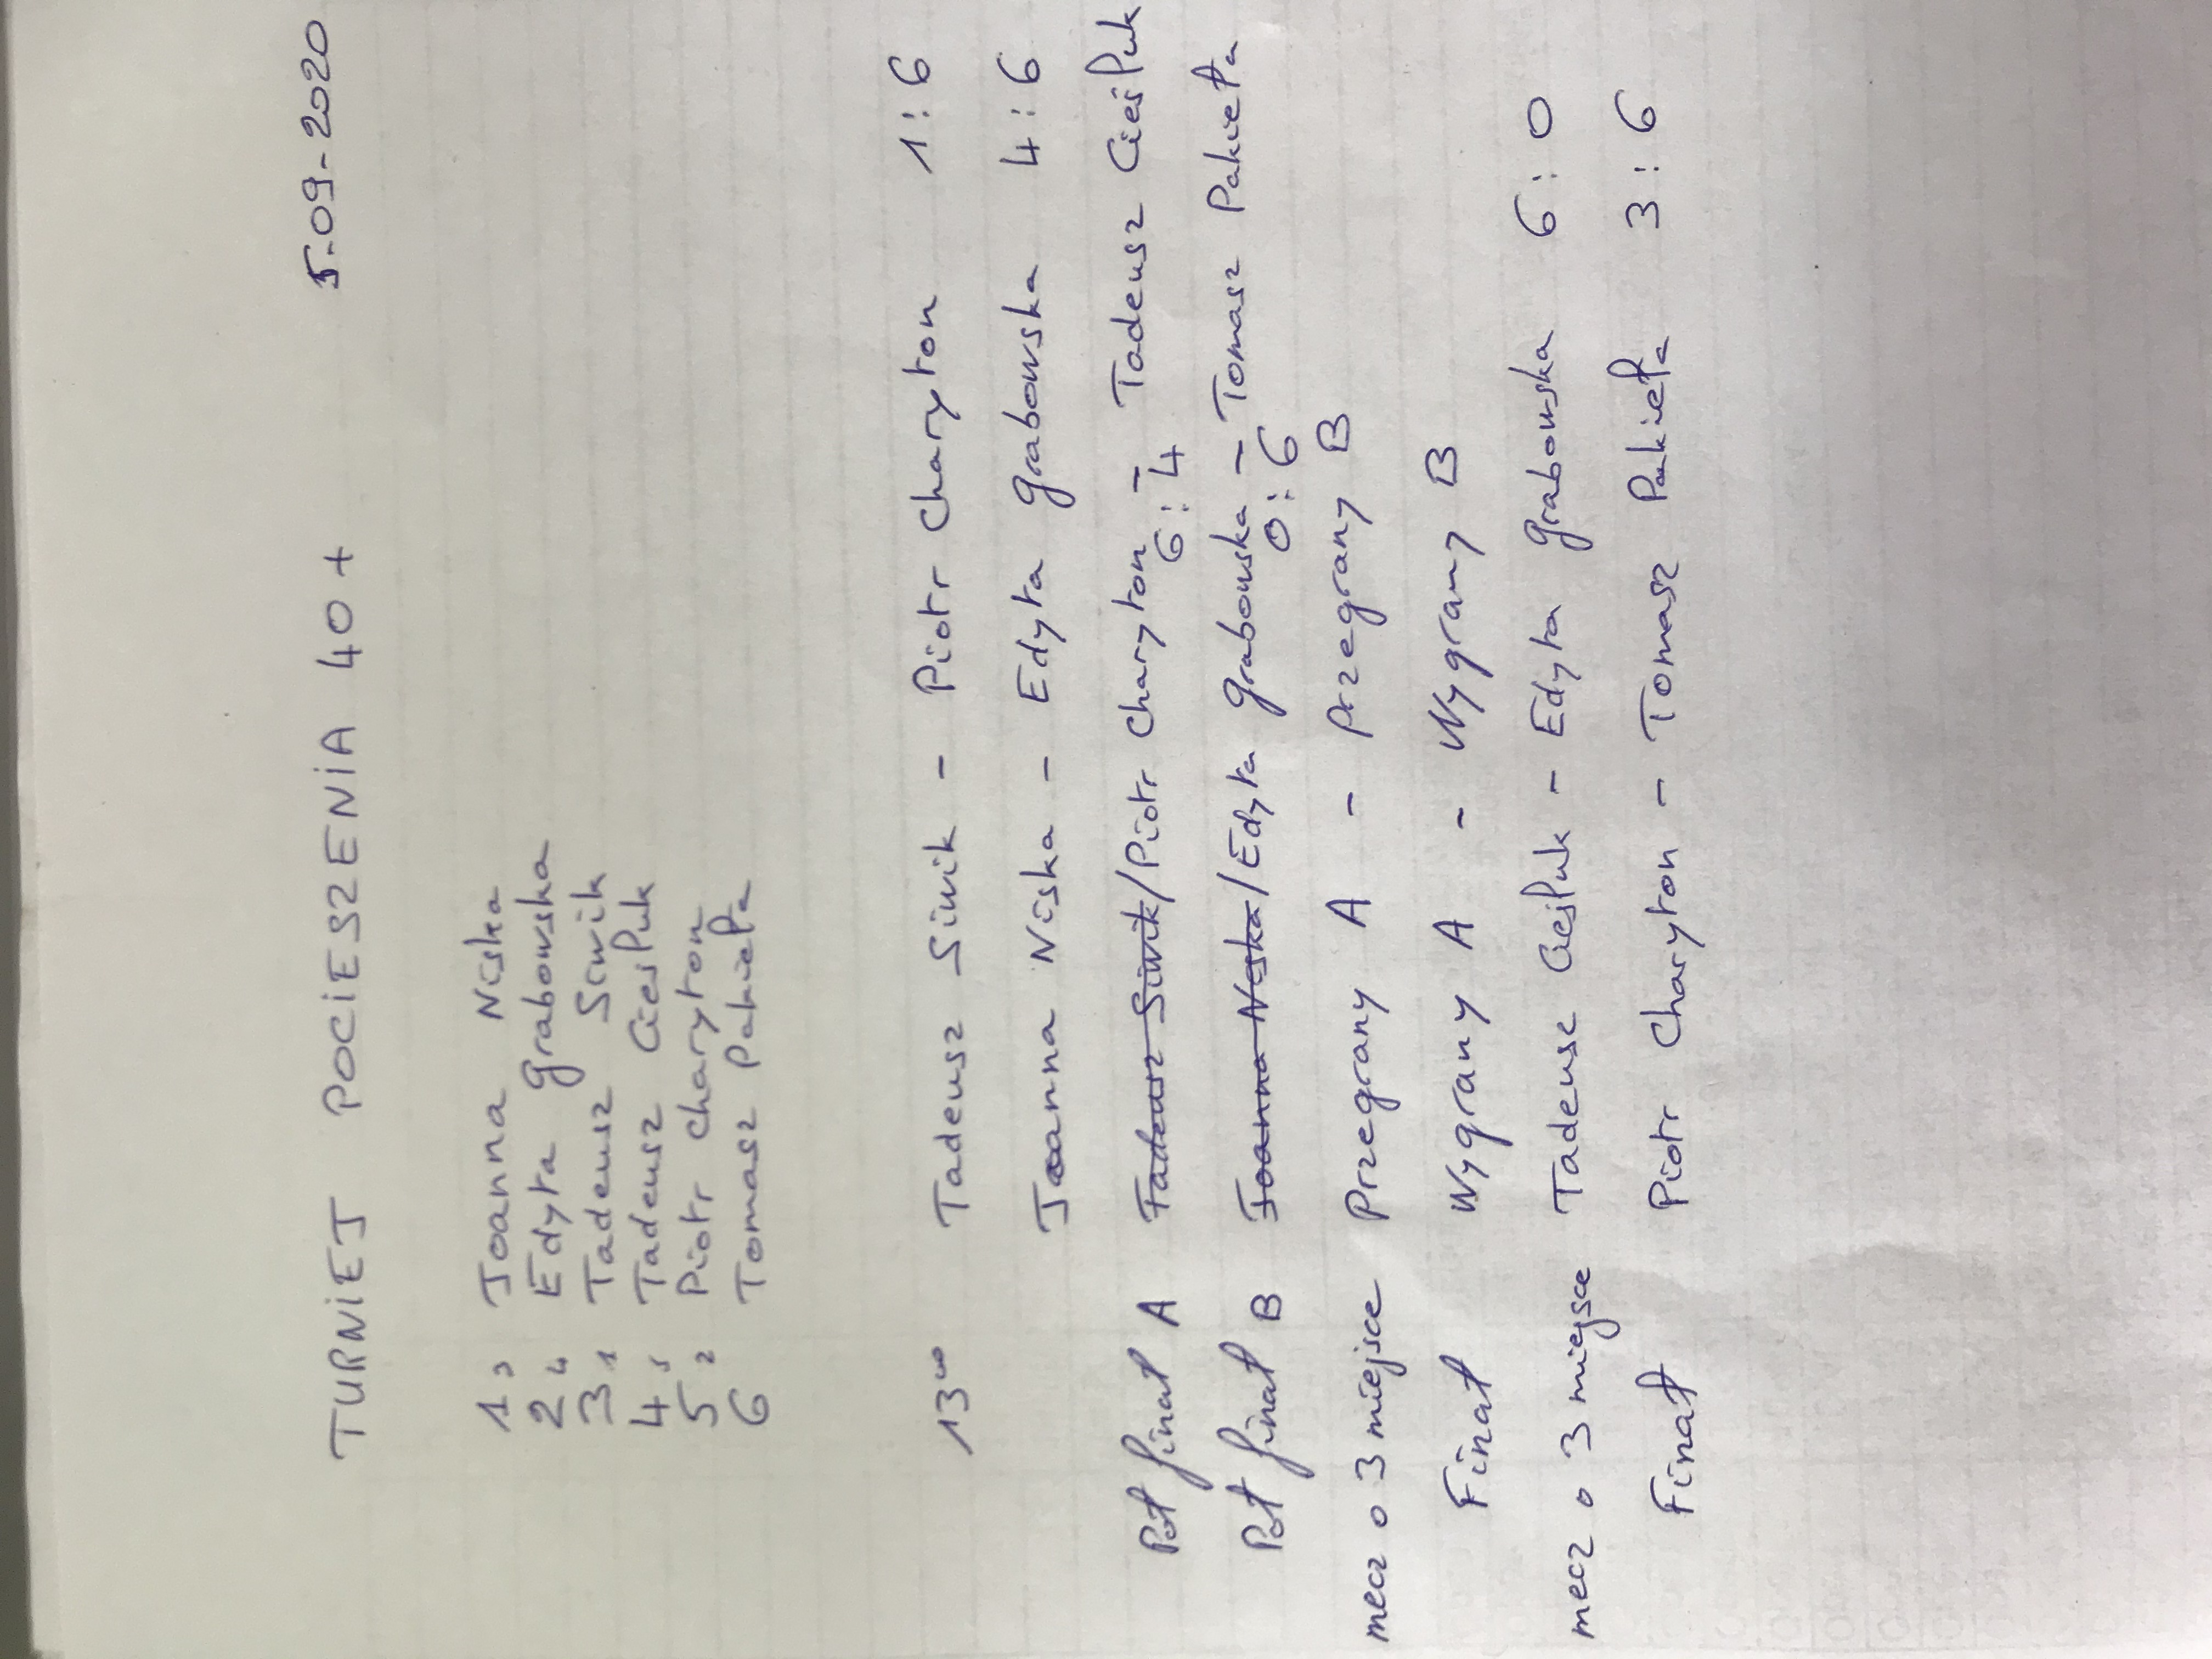 TURNIEJ POCIESZENIA 40+ 5-09-2020
1 3 Joanna Niska
2 4 Edyta Grabowska
3 1 Tadeusz Siwik
4 5 Tadeusz Cieśluk
5 2 Piotr Charyton
6 Tomasz Pakieła
13⁰⁰ Tadeusz Siwik - Piotr Charyton 1:6
Joanna Niska - Edyta Grabowska 4:6
Pół finał A Tadeusz Siwik/Piotr Charyton - Tadeusz Cieśluk
6:4
Pół finał B Joanna Niska/Edyta Grabowska - Tomasz Pakieła
0:6
mecz o 3 miejsce Przegrany A - Przegrany B
Finał Wygrany A - Wygrany B
mecz o 3 miejsce Tadeusz Cieśluk - Edyta Grabowska 6:0
Finał Piotr Charyton - Tomasz Pakieła 3:6